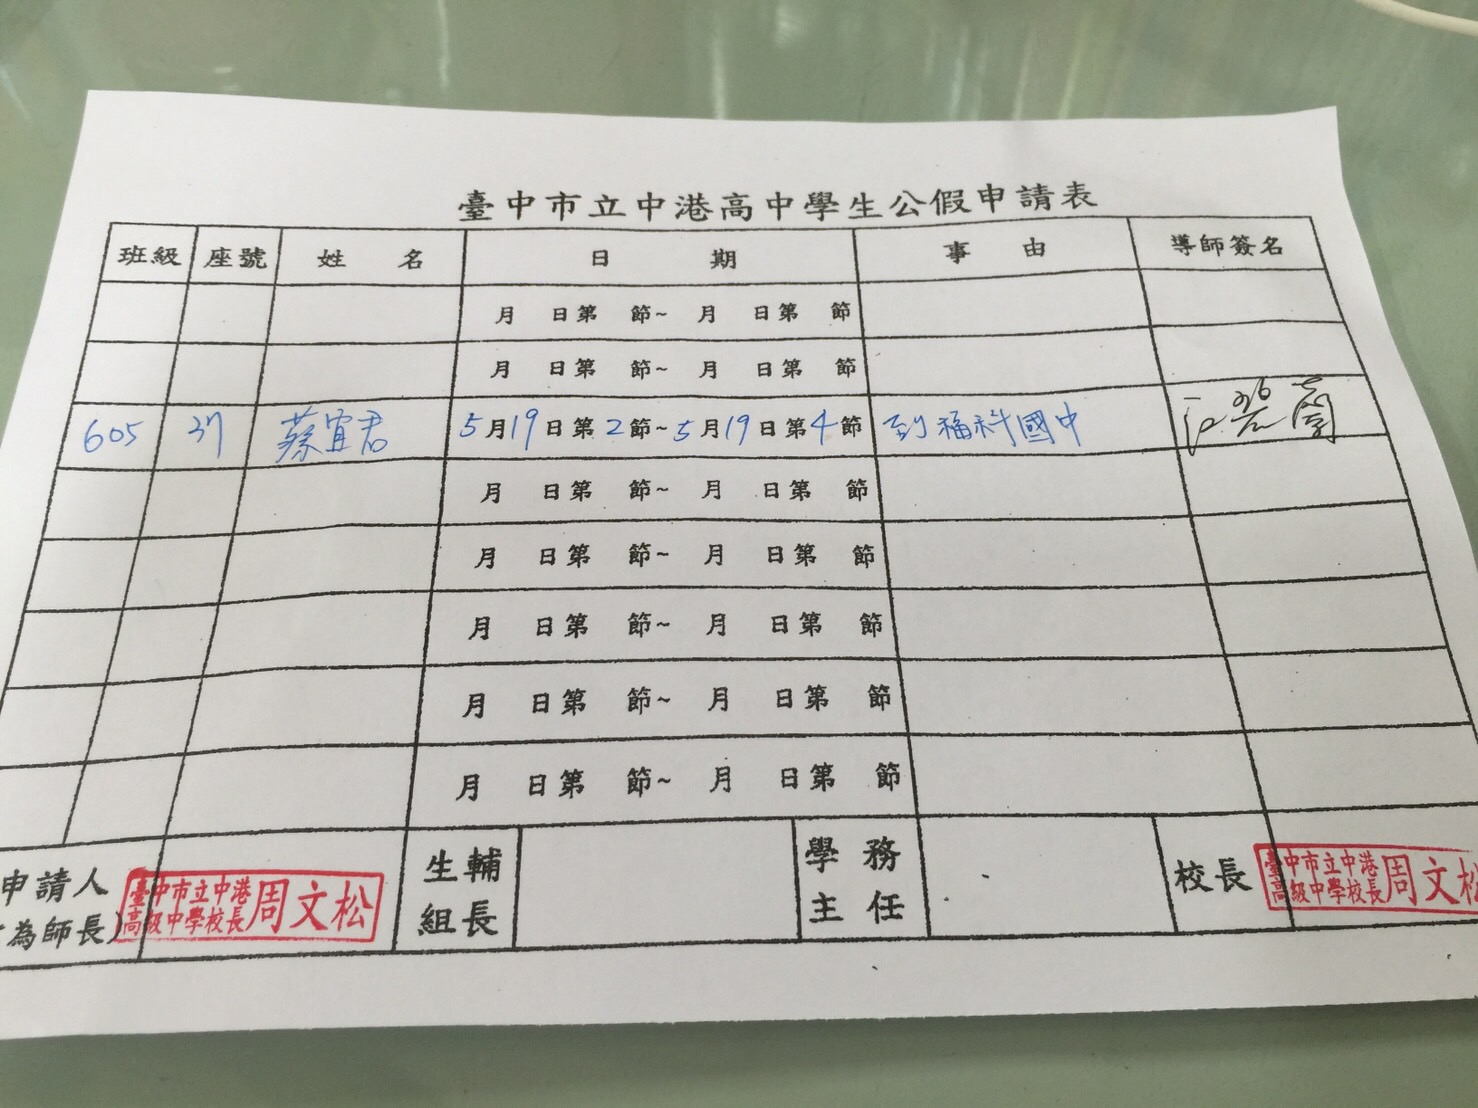 臺中市立中港高中學生公假申請表
班級 座號 姓 名 日 期 事 由 導師簽名
月 日第 節~ 月 日第 節
月 日第 節~ 月 日第 節
605 31 蔡宜君 5月19日第2節~5月19日第4節 到福科國中
月 日第 節~ 月 日第 節
月 日第 節~ 月 日第 節
月 日第 節~ 月 日第 節
月 日第 節~ 月 日第 節
月 日第 節~ 月 日第 節
申請人 生輔 學務 校長
為師長) 組長 主任
臺中市立中港 周文松 臺中市立中港 周文松
高級中學校長 高級中學校長